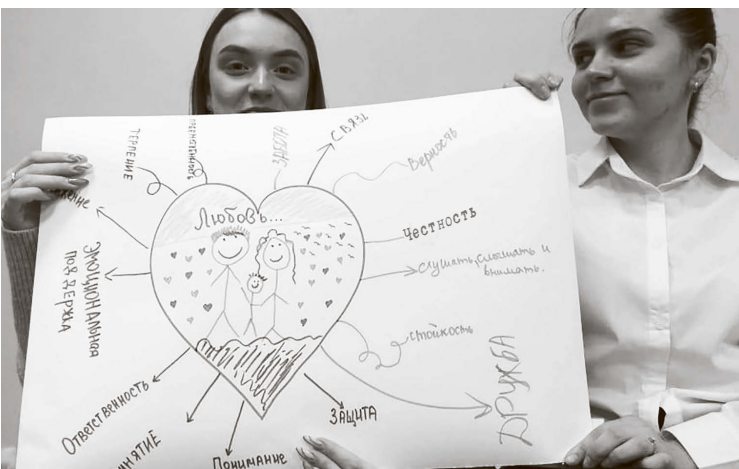 Любовь...
ТЕРПЕНИЕ
ЗАБОТА
СВЯЗЬ
Верность
Честность
Слушать, слышать и
внимать.
стойкость
ДРУЖБА
ЗАЩИТА
Понимание
Ответственность
ЭМОЦИОНАЛЬНАЯ
ПОДДЕРЖКА